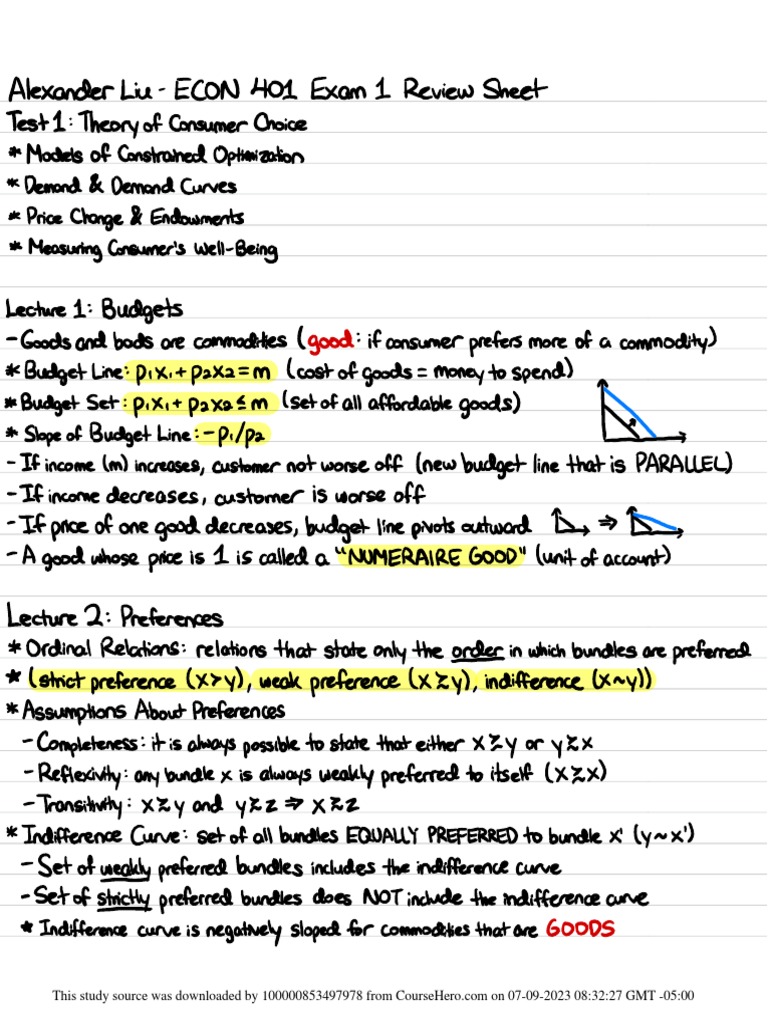 Alexander Liu - ECON 401 Exam 1 Review Sheet
Test 1: Theory of Consumer Choice
* Models of Constrained Optimization
* Demand & Demand Curves
* Price Change & Endowments
* Measuring Consumer's Well-Being
Lecture 1: Budgets
- Goods and bads are commodities (good: if consumer prefers more of a commodity)
* Budget Line: p₁x₁ + p₂x₂ = m (cost of goods = money to spend)
* Budget Set: p₁x₁ + p₂x₂ ≤ m (set of all affordable goods)
* Slope of Budget Line: - p₁/p₂
- If income (m) increases, customer not worse off (new budget line that is PARALLEL)
- If income decreases, customer is worse off
- If price of one good decreases, budget line pivots outward ⇒
- A good whose price is 1 is called a "NUMERAIRE GOOD" (unit of account)
Lecture 2: Preferences
* Ordinal Relations: relations that state only the order in which bundles are preferred
* (strict preference (x≻y), weak preference (x≿y), indifference (x~y))
* Assumptions About Preferences
- Completeness: it is always possible to state that either x≿y or y≿x
- Reflexivity: any bundle x is always weakly preferred to itself (x≿x)
- Transitivity: x≿y and y≿z ⇒ x≿z
* Indifference Curve: set of all bundles EQUALLY PREFERRED to bundle x' (y~x')
- Set of weakly preferred bundles includes the indifference curve
- Set of strictly preferred bundles does NOT include the indifference curve
* Indifference curve is negatively sloped for commodities that are GOODS
This study source was downloaded by 100000853497978 from CourseHero.com on 07-09-2023 08:32:27 GMT -05:00